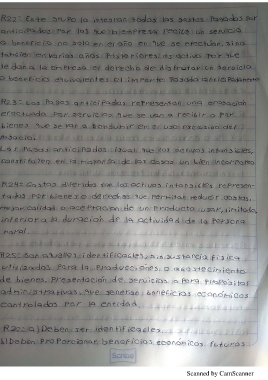 R22: Este grupo lo integran todos los gastos pagados por
anticipados por los que la empresa logica un servicio
o beneficio no solo en el año en que se efectuan, sino
tambien en varios años posteriores es decir por que
le dan a la empresa el derecho de disfrutar un servicio
o beneficios equivalentes al importe pagado anticipadamente
R23: Los pagos anticipados representan una erogación
efectuada por servicios que se van a recibir o por
bienes que se van a consumir en el uso exclusivo del
negocio
Los pagos anticipados igual que los activos intangibles,
constituyen en la mayoria de los casos un bien incorporeo
R24: Costos diferidos son los activos intangibles represen-
tados por bienes o derechos que permiten reducir costos,
o aceptación de un producto, usar, limitado,
inferior a la duracion de la actividad de la persona
moral
R25: Son aquellos identificables, sin sustancia fisica
utilizados para la producción o abastecimiento
de bienes, prestacion de servicios o para propositos
administrativos, que generan beneficios económicos
controlados por la entidad.
R26: a) Deben ser identificables
b) Deben proporcionar beneficios económicos futuros
Scribe
Scanned by CamScanner